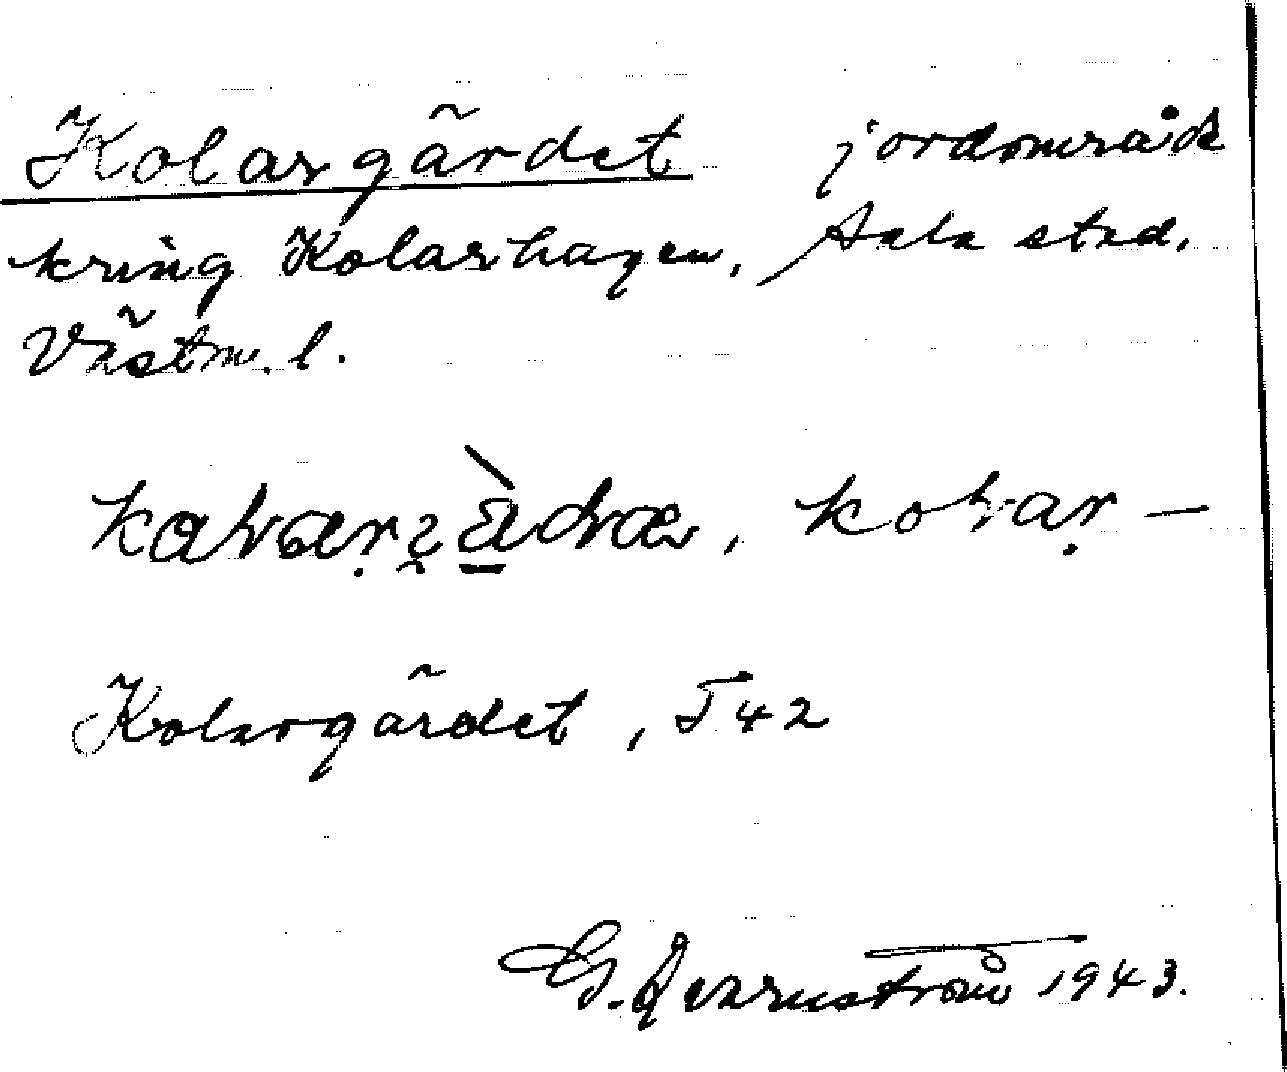 Kolargärdet jordområde
kring Kolarhagen, Sala stad,
Västm. l.
Kolargärdet, T 42
G. Qvarnström 1943.